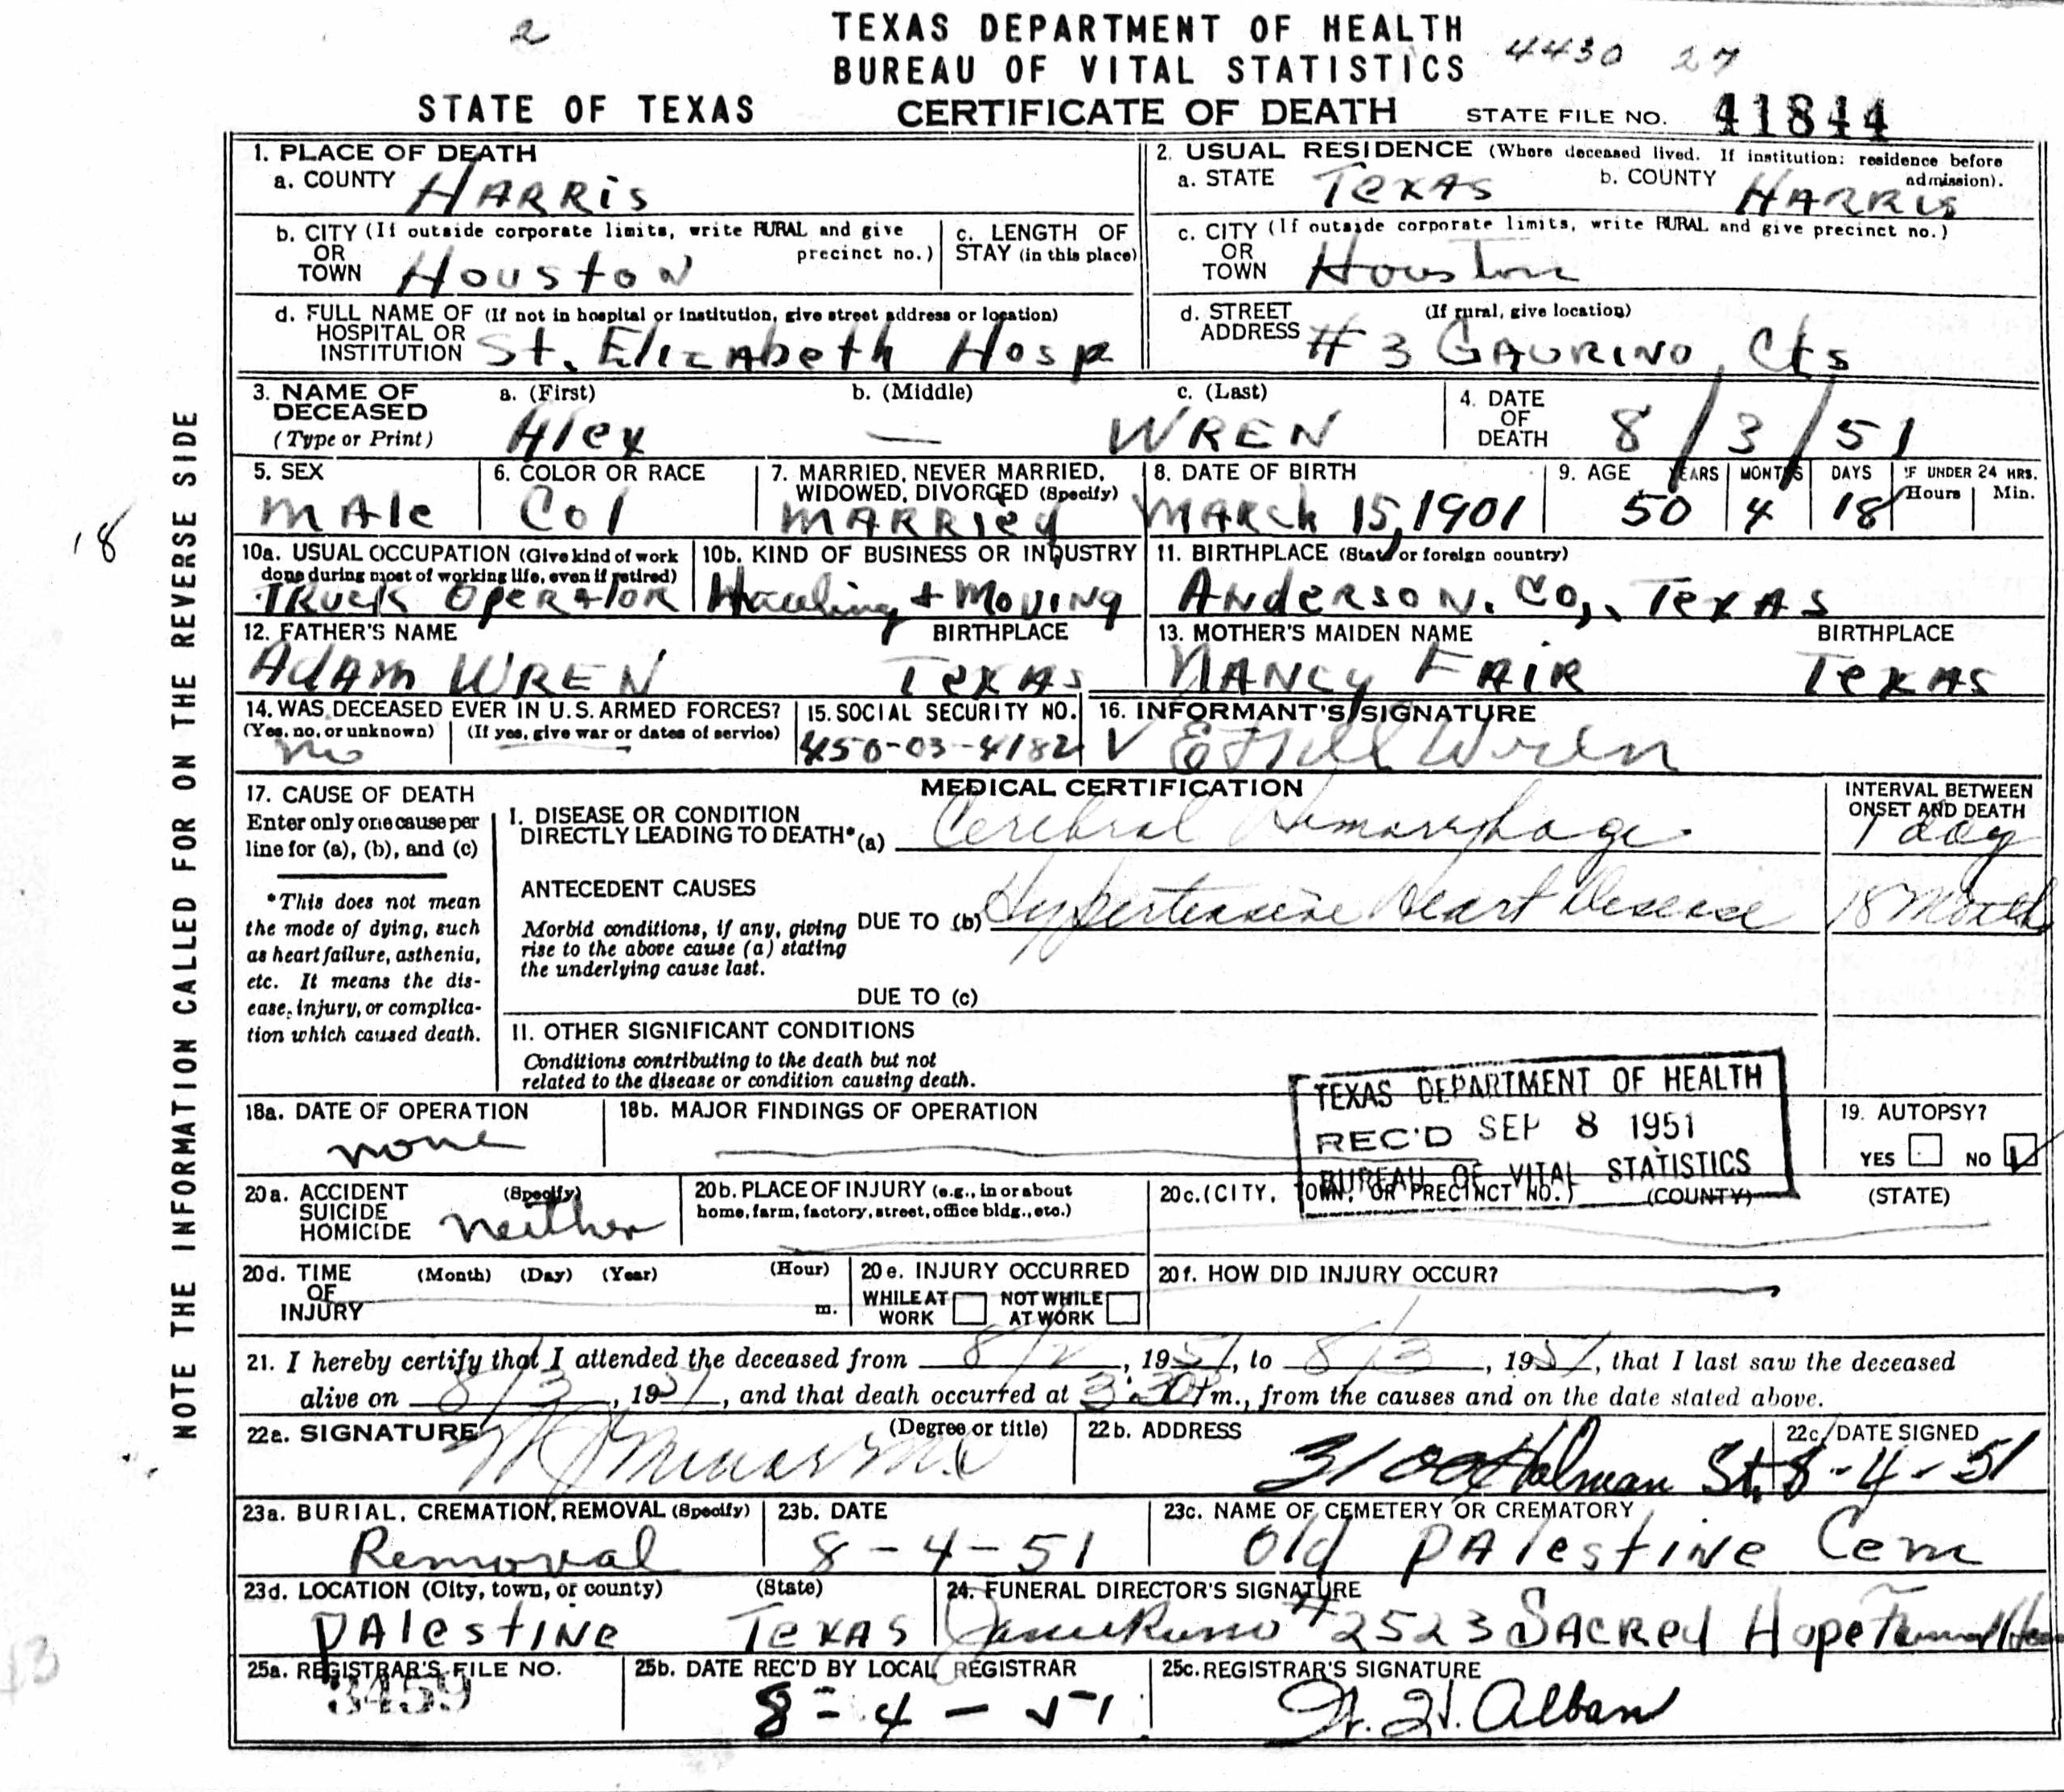 2
TEXAS DEPARTMENT OF HEALTH
BUREAU OF VITAL STATISTICS
4430 27
STATE OF TEXAS
CERTIFICATE OF DEATH
STATE FILE NO. 41844
NOTE THE INFORMATION CALLED FOR ON THE REVERSE SIDE
18
1. PLACE OF DEATH
a. COUNTY HARRIS
2. USUAL RESIDENCE (Where deceased lived. If institution: residence before admission).
a. STATE TEXAS b. COUNTY HARRIS
b. CITY (If outside corporate limits, write RURAL and give precinct no.)
OR TOWN Houston
c. LENGTH OF STAY (in this place)
c. CITY (If outside corporate limits, write RURAL and give precinct no.)
OR TOWN Houston
d. FULL NAME OF (If not in hospital or institution, give street address or location)
HOSPITAL OR INSTITUTION St. Elizabeth Hosp
d. STREET ADDRESS (If rural, give location)
# 3 GAURINO Cts
3. NAME OF DECEASED (Type or Print)
a. (First) b. (Middle) c. (Last)
Alex — WREN
4. DATE OF DEATH 8/3/51
5. SEX
Male
6. COLOR OR RACE
Col
7. MARRIED, NEVER MARRIED, WIDOWED, DIVORCED (Specify)
MARRIED
8. DATE OF BIRTH
MARCH 15, 1901
9. AGE YEARS MONTHS DAYS IF UNDER 24 HRS. Hours Min.
50 4 18
10a. USUAL OCCUPATION (Give kind of work done during most of working life, even if retired)
TRUCK OPERATOR
10b. KIND OF BUSINESS OR INDUSTRY
Hauling + Moving
11. BIRTHPLACE (State or foreign country)
Anderson. Co., Texas
12. FATHER'S NAME BIRTHPLACE
ADAM WREN TEXAS
13. MOTHER'S MAIDEN NAME BIRTHPLACE
NANCY FAIR TEXAS
14. WAS DECEASED EVER IN U.S. ARMED FORCES?
(Yes, no, or unknown) (If yes, give war or dates of service)
no
15. SOCIAL SECURITY NO.
450-03-4182
16. INFORMANT'S SIGNATURE
Wren
MEDICAL CERTIFICATION
17. CAUSE OF DEATH
Enter only one cause per line for (a), (b), and (c)
*This does not mean the mode of dying, such as heart failure, asthenia, etc. It means the disease, injury, or complication which caused death.
I. DISEASE OR CONDITION DIRECTLY LEADING TO DEATH* (a) Cerebral Hemorrhage
INTERVAL BETWEEN ONSET AND DEATH
1 day
ANTECEDENT CAUSES
Morbid conditions, if any, giving rise to the above cause (a) stating the underlying cause last.
DUE TO (b) Hypertensive Heart Disease 18 Months
DUE TO (c)
II. OTHER SIGNIFICANT CONDITIONS
Conditions contributing to the death but not related to the disease or condition causing death.
TEXAS DEPARTMENT OF HEALTH
REC'D SEP 8 1951
BUREAU OF VITAL STATISTICS
18a. DATE OF OPERATION
none
18b. MAJOR FINDINGS OF OPERATION
19. AUTOPSY?
YES NO
20a. ACCIDENT SUICIDE HOMICIDE (Specify)
neither
20b. PLACE OF INJURY (e.g., in or about home, farm, factory, street, office bldg., etc.)
20c. (CITY, TOWN, OR PRECINCT NO.) (COUNTY) (STATE)
20d. TIME OF INJURY (Month) (Day) (Year) (Hour) m.
20e. INJURY OCCURRED
WHILE AT WORK NOT WHILE AT WORK
20f. HOW DID INJURY OCCUR?
21. I hereby certify that I attended the deceased from 8/2, 1951, to 8/3, 1951, that I last saw the deceased
alive on 8/3, 1951, and that death occurred at 3:30 P m., from the causes and on the date stated above.
22a. SIGNATURE (Degree or title)
22b. ADDRESS
Holman St.
22c. DATE SIGNED
8-4-51
23a. BURIAL, CREMATION, REMOVAL (Specify)
Removal
23b. DATE
8-4-51
23c. NAME OF CEMETERY OR CREMATORY
Old Palestine Cem
23d. LOCATION (City, town, or county) (State)
Palestine Texas
24. FUNERAL DIRECTOR'S SIGNATURE
#2523 SACRED Hope Funeral Home
25a. REGISTRAR'S FILE NO.
3459
25b. DATE REC'D BY LOCAL REGISTRAR
8-4-51
25c. REGISTRAR'S SIGNATURE
Alban